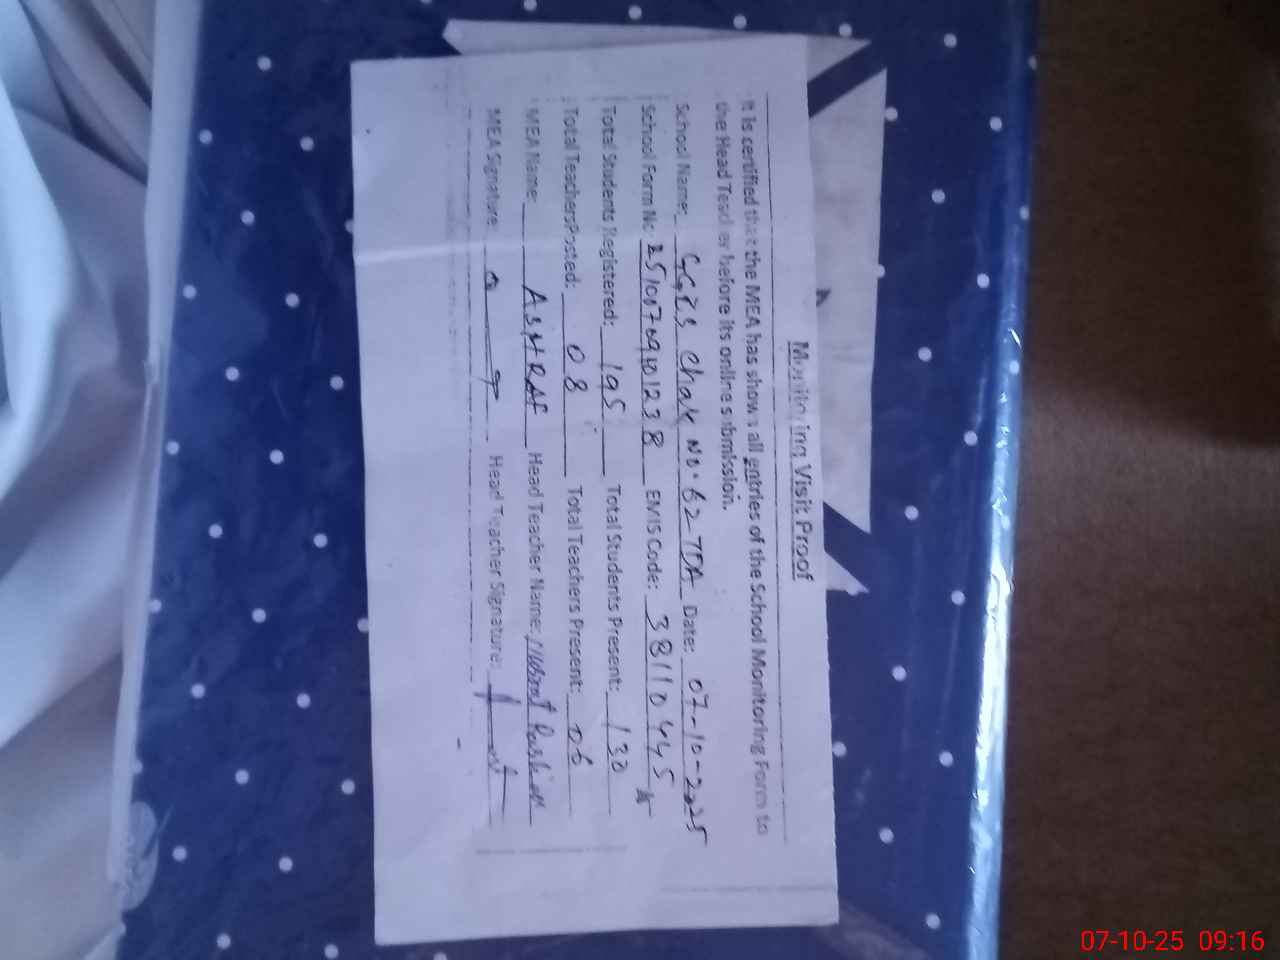 Monitoring Visit Proof
It is certified that the MEA has shown all entries of the School Monitoring Form to
the Head Teacher before its online submission.
School Name: Chak No. 62 TDA Date: 07-10-2025
School Form No: EMIS Code: 38110445
Total Students Registered: 195 Total Students Present: 130
Total TeachersPosted: 08 Total Teachers Present: 06
MEA Name: ASHRAF Head Teacher Name:
MEA Signature: Head Teacher Signature:
07-10-25 09:16